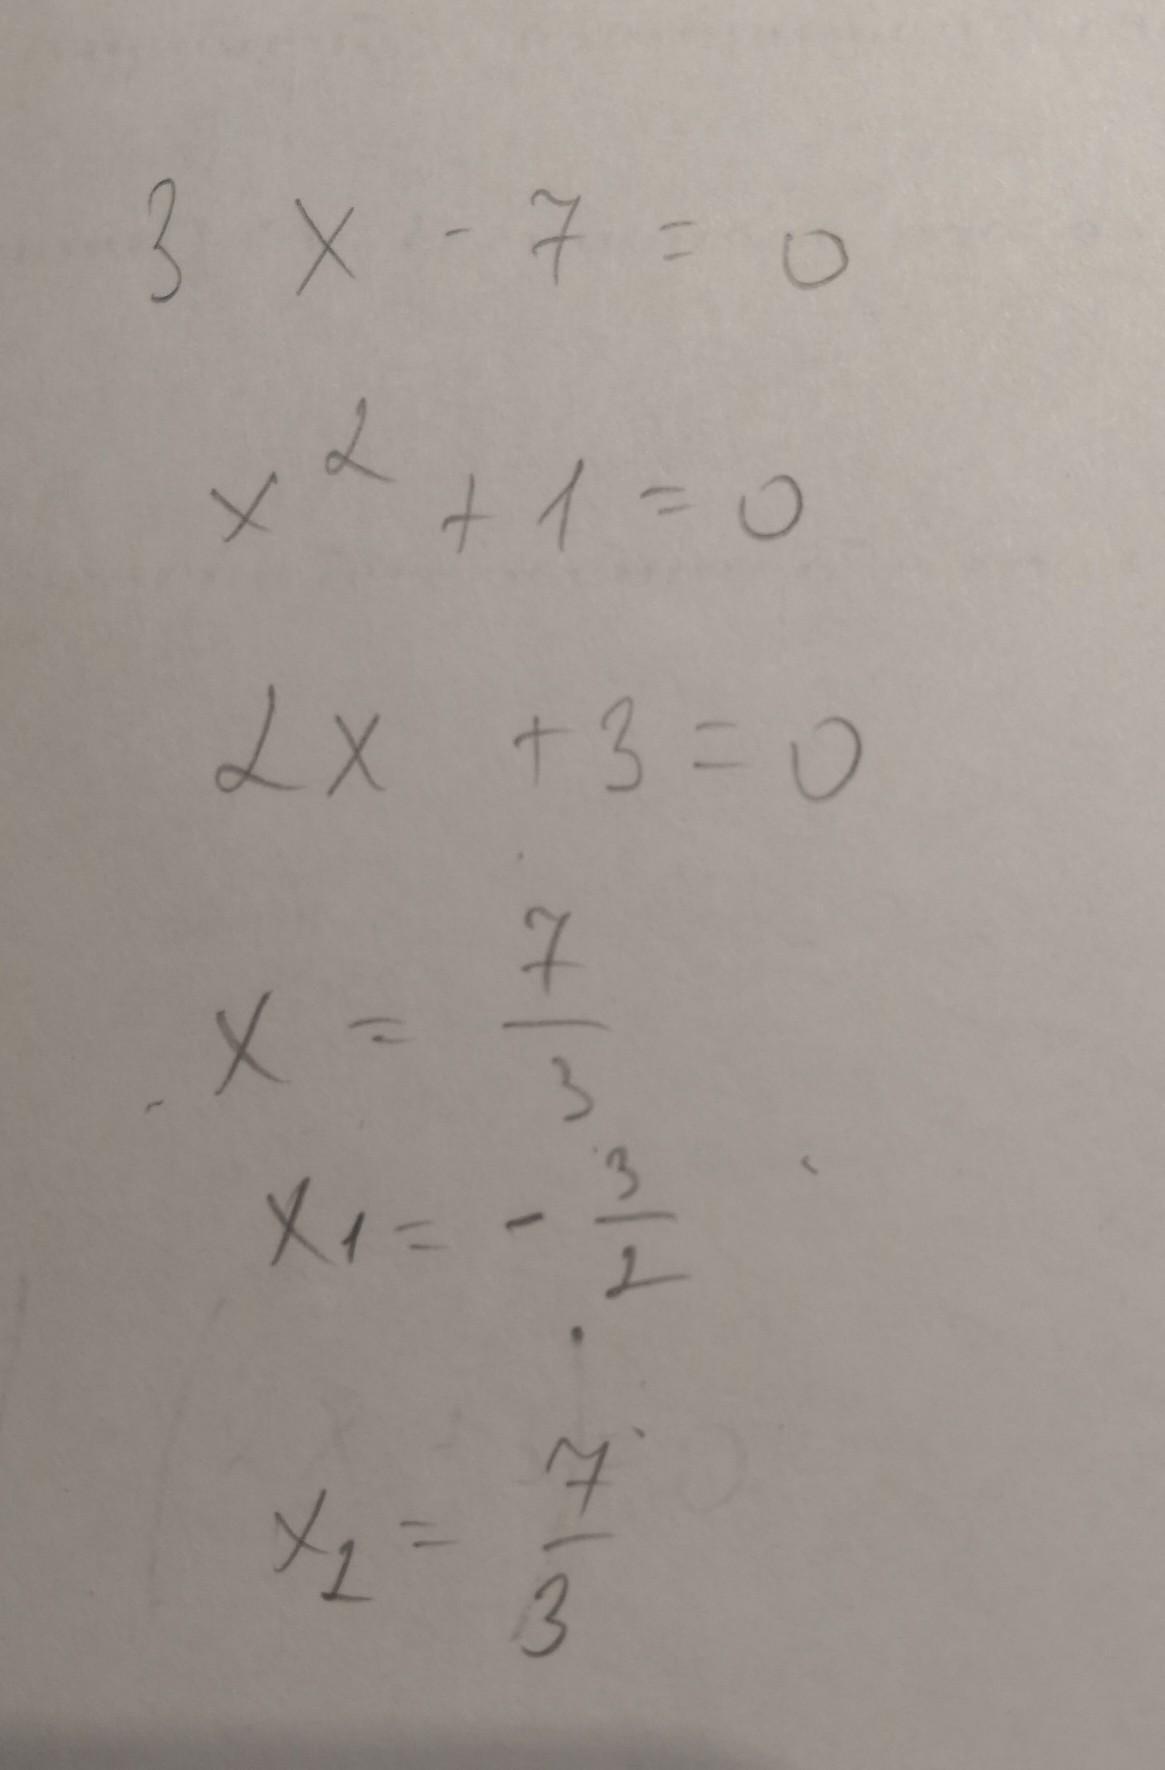 3 x - 7 = 0
x² + 1 = 0
2x + 3 = 0
x = 7/3
x₁ = - 3/2
x₂ = 7/3